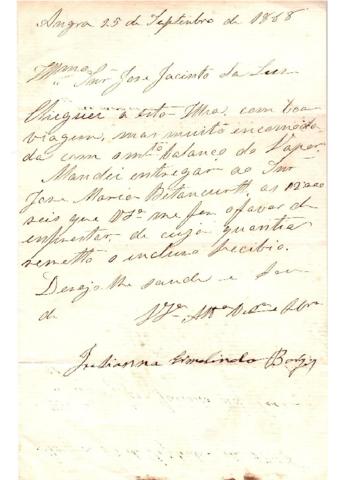 Angra 25 de Septembro de 1868
Illmo Snr Jose Jacinto da Luz
Cheguei a esta Ilha, com boa
viagem, mas muito encomoda
da com o mto balanço do Vapor.
Mandei entregar ao Snr
Jose Maria Betancurtt, as
seis que VSa me fez o favor d
emprestar, de cuja quantia
remetto o incluso recibo.
Desejo lhe saude e sou
de VSa Atta Obra
Julianna Ermelinda Borges